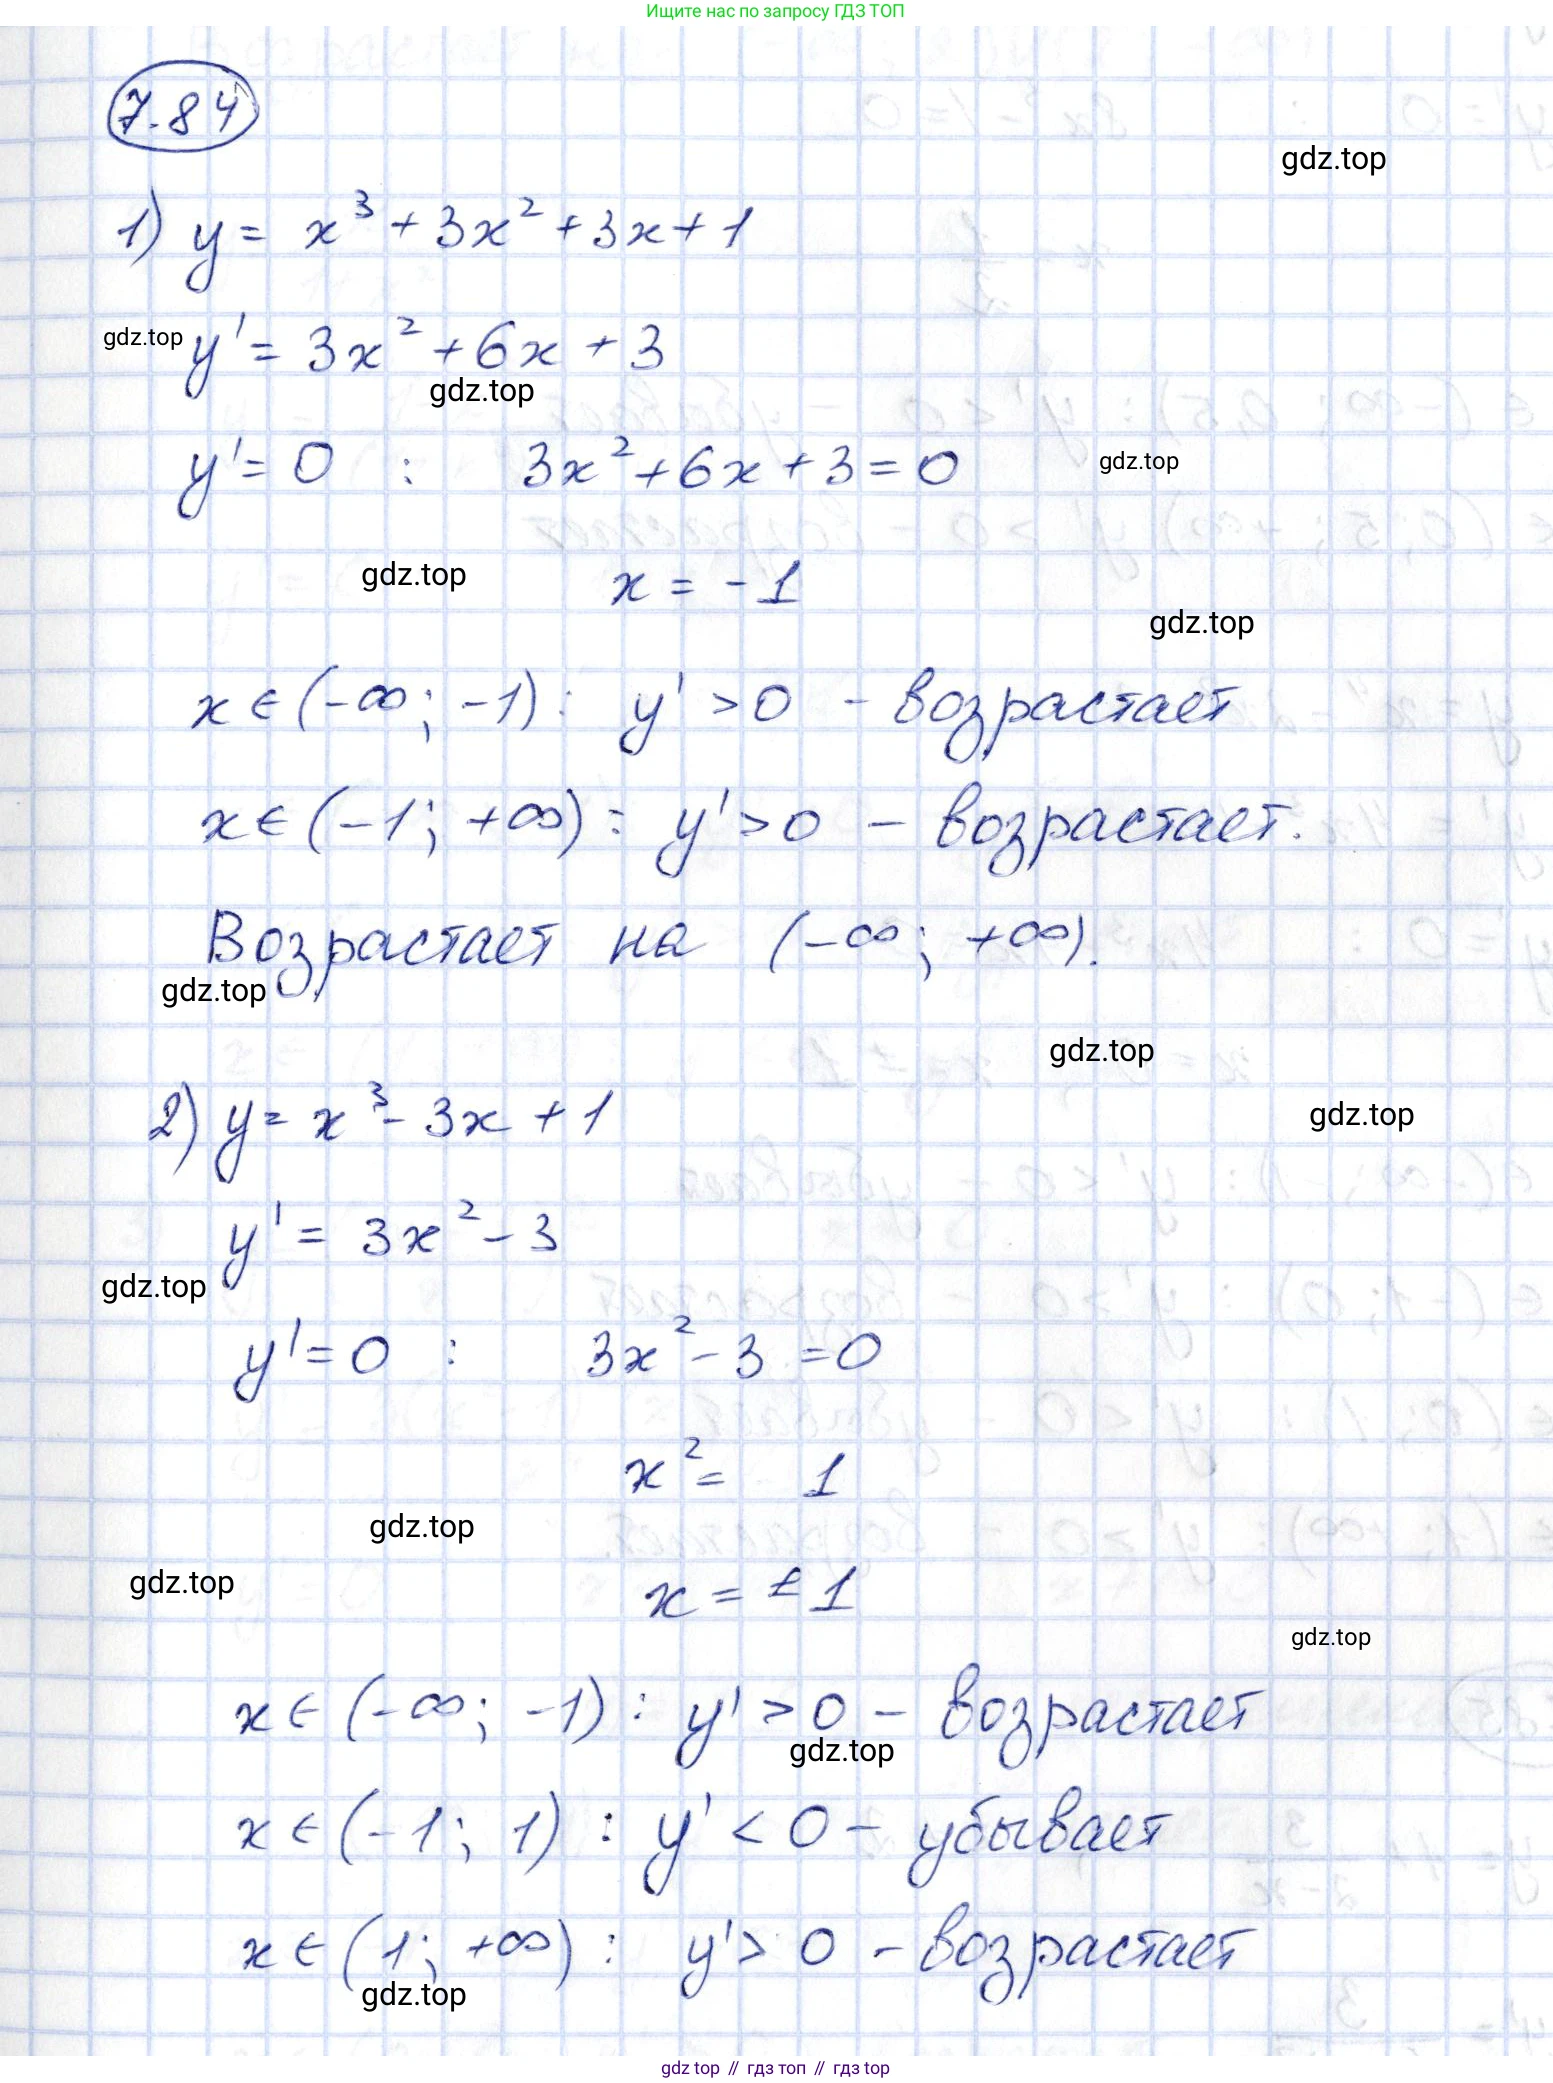 Ищите нас по запросу ГДЗ ТОП
7.84
gdz.top
1) y = x³ + 3x² + 3x + 1
gdz.top
y' = 3x² + 6x + 3
gdz.top
y' = 0 : 3x² + 6x + 3 = 0
gdz.top
gdz.top
x = -1
gdz.top
x ∈ (-∞; -1) : y' > 0 - возрастает
x ∈ (-1; +∞) : y' > 0 - возрастает.
Возрастает на (-∞; +∞).
gdz.top
gdz.top
2) y = x³ - 3x + 1
gdz.top
y' = 3x² - 3
gdz.top
y' = 0 : 3x² - 3 = 0
x² = 1
gdz.top
gdz.top
x = ± 1
gdz.top
x ∈ (-∞; -1) : y' > 0 - возрастает
gdz.top
x ∈ (-1; 1) : y' < 0 - убывает
x ∈ (1; +∞) : y' > 0 - возрастает
gdz.top
gdz top // гдз топ // гдз top